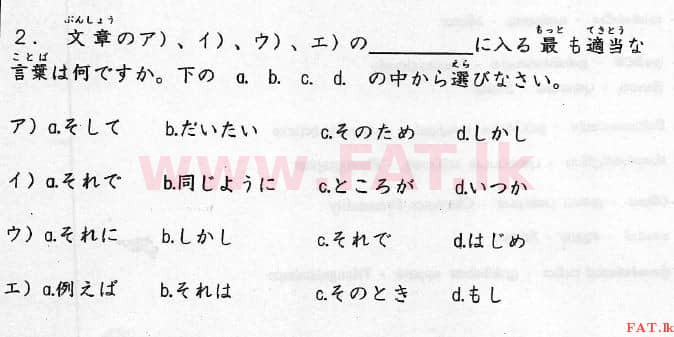 2. 文章のア)、イ)、ウ)、エ)の＿＿＿＿＿＿に入る最も適当な
ぶんしょう もっと てきとう
言葉は何ですか。下の a. b. c. d. の中から選びなさい。
ことば えら
ア) a.そして b.だいたい c.そのため d.しかし
イ) a.それで b.同じように c.ところが d.いつか
www.FAT.lk
ウ) a.それに b.しかし c.それで d.はじめ
エ) a.例えば b.それは c.そのとき d.もし
FAT.lk